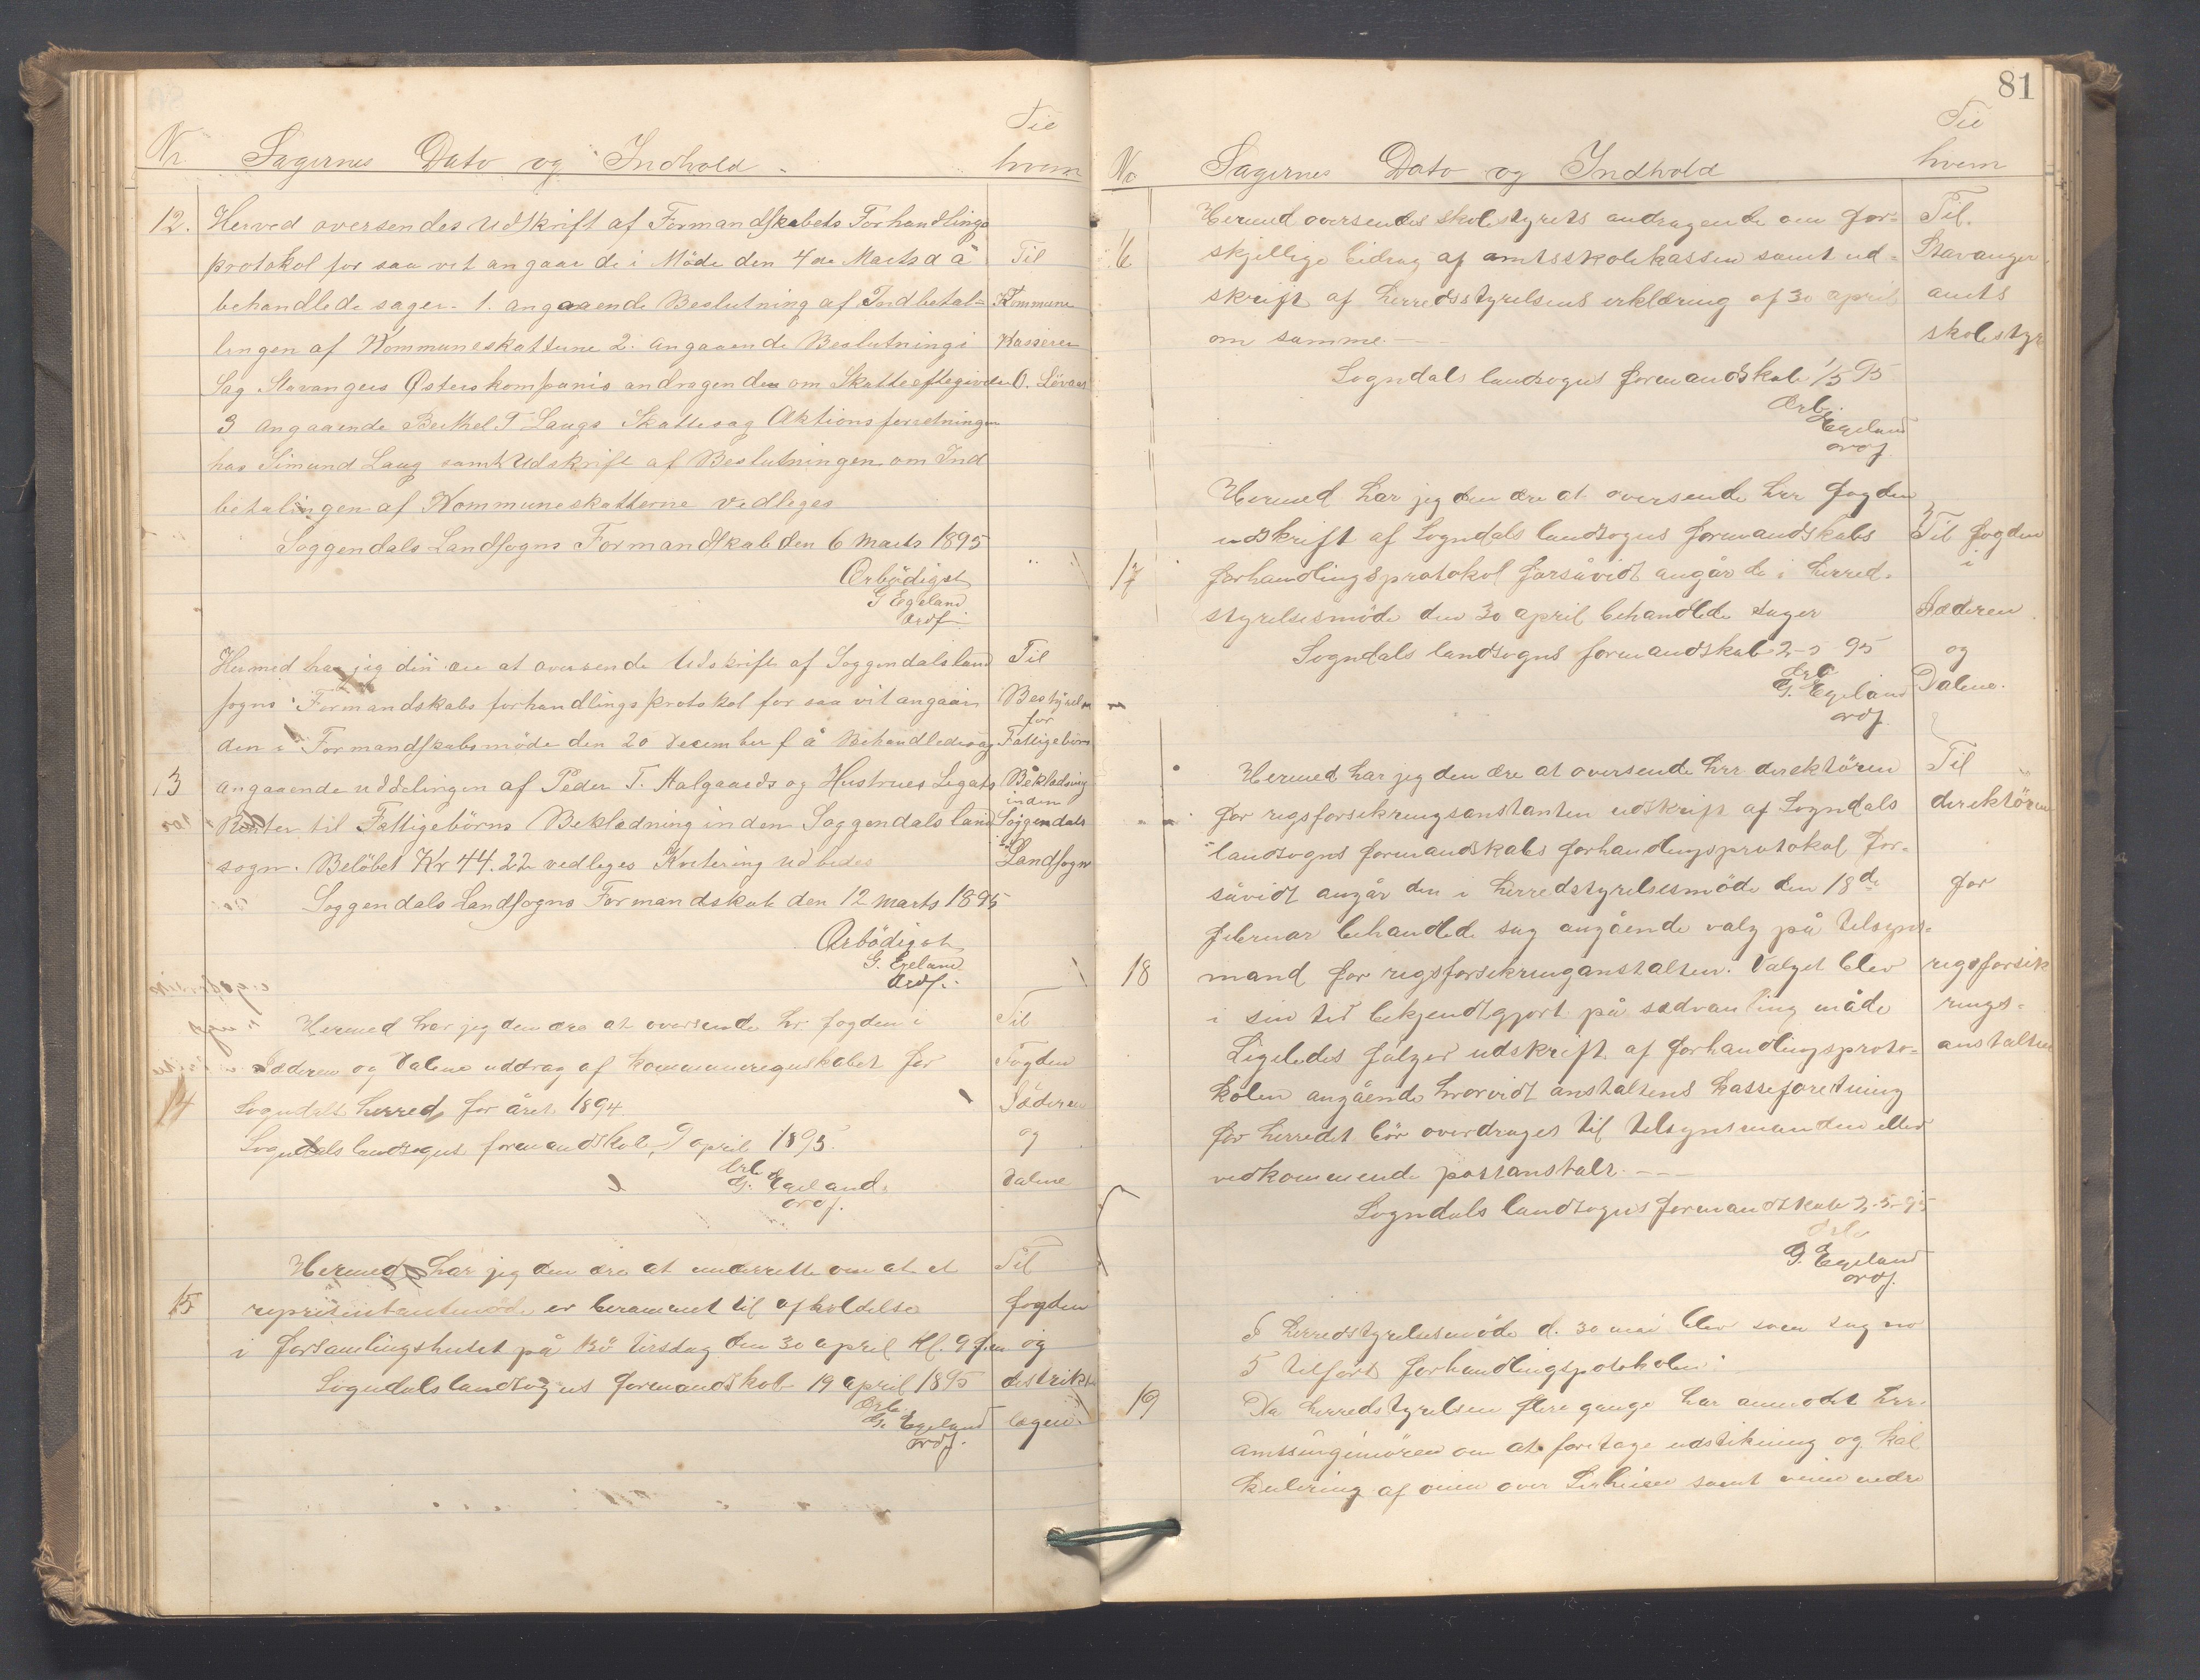 Nr. Sagernes Dato og Indhold. Til hvem
12. Herved oversendes Udskrift af Formandskabets Forhandlings
protokol for saa vit angaar de i Möde den 4de Marts d å Til
behandlede sager. 1. angaaende Beslutning af Indbetal- Kommune
lingen af Kommuneskattene 2. angaaende Beslutning i Kasserer
Sag Stavangers Østers kompanis andragenden om Skatteeftegivelse O. Lövaas
3 angaaende Berthel T Laugs Skattesag Aktionsforretningen
hos Simund Laug samt Udskrift af Beslutningen om Ind
betalingen af Kommuneskatterne vedleges
Soggendals Landsogns Formandskab den 6 Marts 1895
Ærbödigst
G Egeland
Ordf.
Hermed har jeg den ære at oversende Udskrift af Soggendals land Til
sogns Formandskabs forhandlings protokol for saa vit angaar Bestyrelsen
for
den i Formandskabsmöde den 20 December f å Behandlede sag Fattigebörns
13 angaaende uddelingen af Peder T. Aalgaards og Hustrues Legats Beklædning
inden
Renter til Fattigebörns Beklædning inden Soggendals land Soggendals
sogn. Belöbet Kr 44.22 vedleges Kvitering udbedes Landsogn
Soggendals Landsogns Formandskab den 12 Marts 1895
Ærbödigst
G. Egeland
Ordf.
Hermed har jeg den ære at oversende hr fogden i Til
Jæderen og Dalene uddrag af kommuneregnskabet for Fogden
14 Sogndals herred for året 1894. Jæderen
Sogndals landsogns formandskab, 9 april 1895. og
Ærb
G. Egeland. Dalene
ordf.
Hermed har jeg den ære at underrette om at et Til
15 representantmöde er berammet til afholdelse fogden
i forsamlingshuset på Bö tirsdag den 30 april Kl. 9 fm og
Sogndals landsogns formandskab 19 april 1895 distrikts
Ærb.
G. Egeland lægen
ordf.
81
No Sagernes Dato og Indhold Til hvem
Hermed oversendes skolestyrets andragende om for- Til.
16 skjellige bidrag af amtsskolekassen samt ud- Stavanger
skrift af herredsstyrelsens erklæring af 30 april amts
om samme. skolestyr
Sogndals landsogns formandskab 1/5 95
Ærb.
Egeland
ordf.
Hermed har jeg den ære at oversende hrr fogden
udskrift af Sogndals landsogns formandskabs Til fogden
17 forhandlingsprotokol forsåvidt angår de i herred- i
styrelsesmöde den 30 april behandlede sager Jæderen
Sogndals landsogns formandskab 2-5 95 og
Ærb
G. Egeland Dalene.
ordf.
Hermed har jeg den ære at oversende hrr direktören Til
for rigsforsikringsanstanten udskrift af Sogndals direktören
landsogns formandskabs forhandlingsprotokol for-
såvidt angår den i herredstyrelsesmöde den 18de for
februar behandlede sag angående valg på tilsyns-
18 mand for rigsforsikringanstalten. Valget blev rigsforsik
i sin tid bekjendtgjort på sædvanling måde rings-
Ligeledes fölger udskrift af forhandlingsproto- anstalten
kolen angående hvorvidt anstaltens kasseforetning
for herredet bör overdrages til tilsynsmanden eller
vedkommende postanstalt.
Sogndals landsogns formandskab 2-5-95
Ærb
G. Egeland
ordf.
I herredstyrelsesmöde d. 30 mai blev som sag no
5 tilfört forhandlingsprotokolen:
19 Da herredstyrelsen flere gange har anmodet hrr.
amtsingeniören om at foretage udstikning og kal
kulering af veien over samt veien nedre